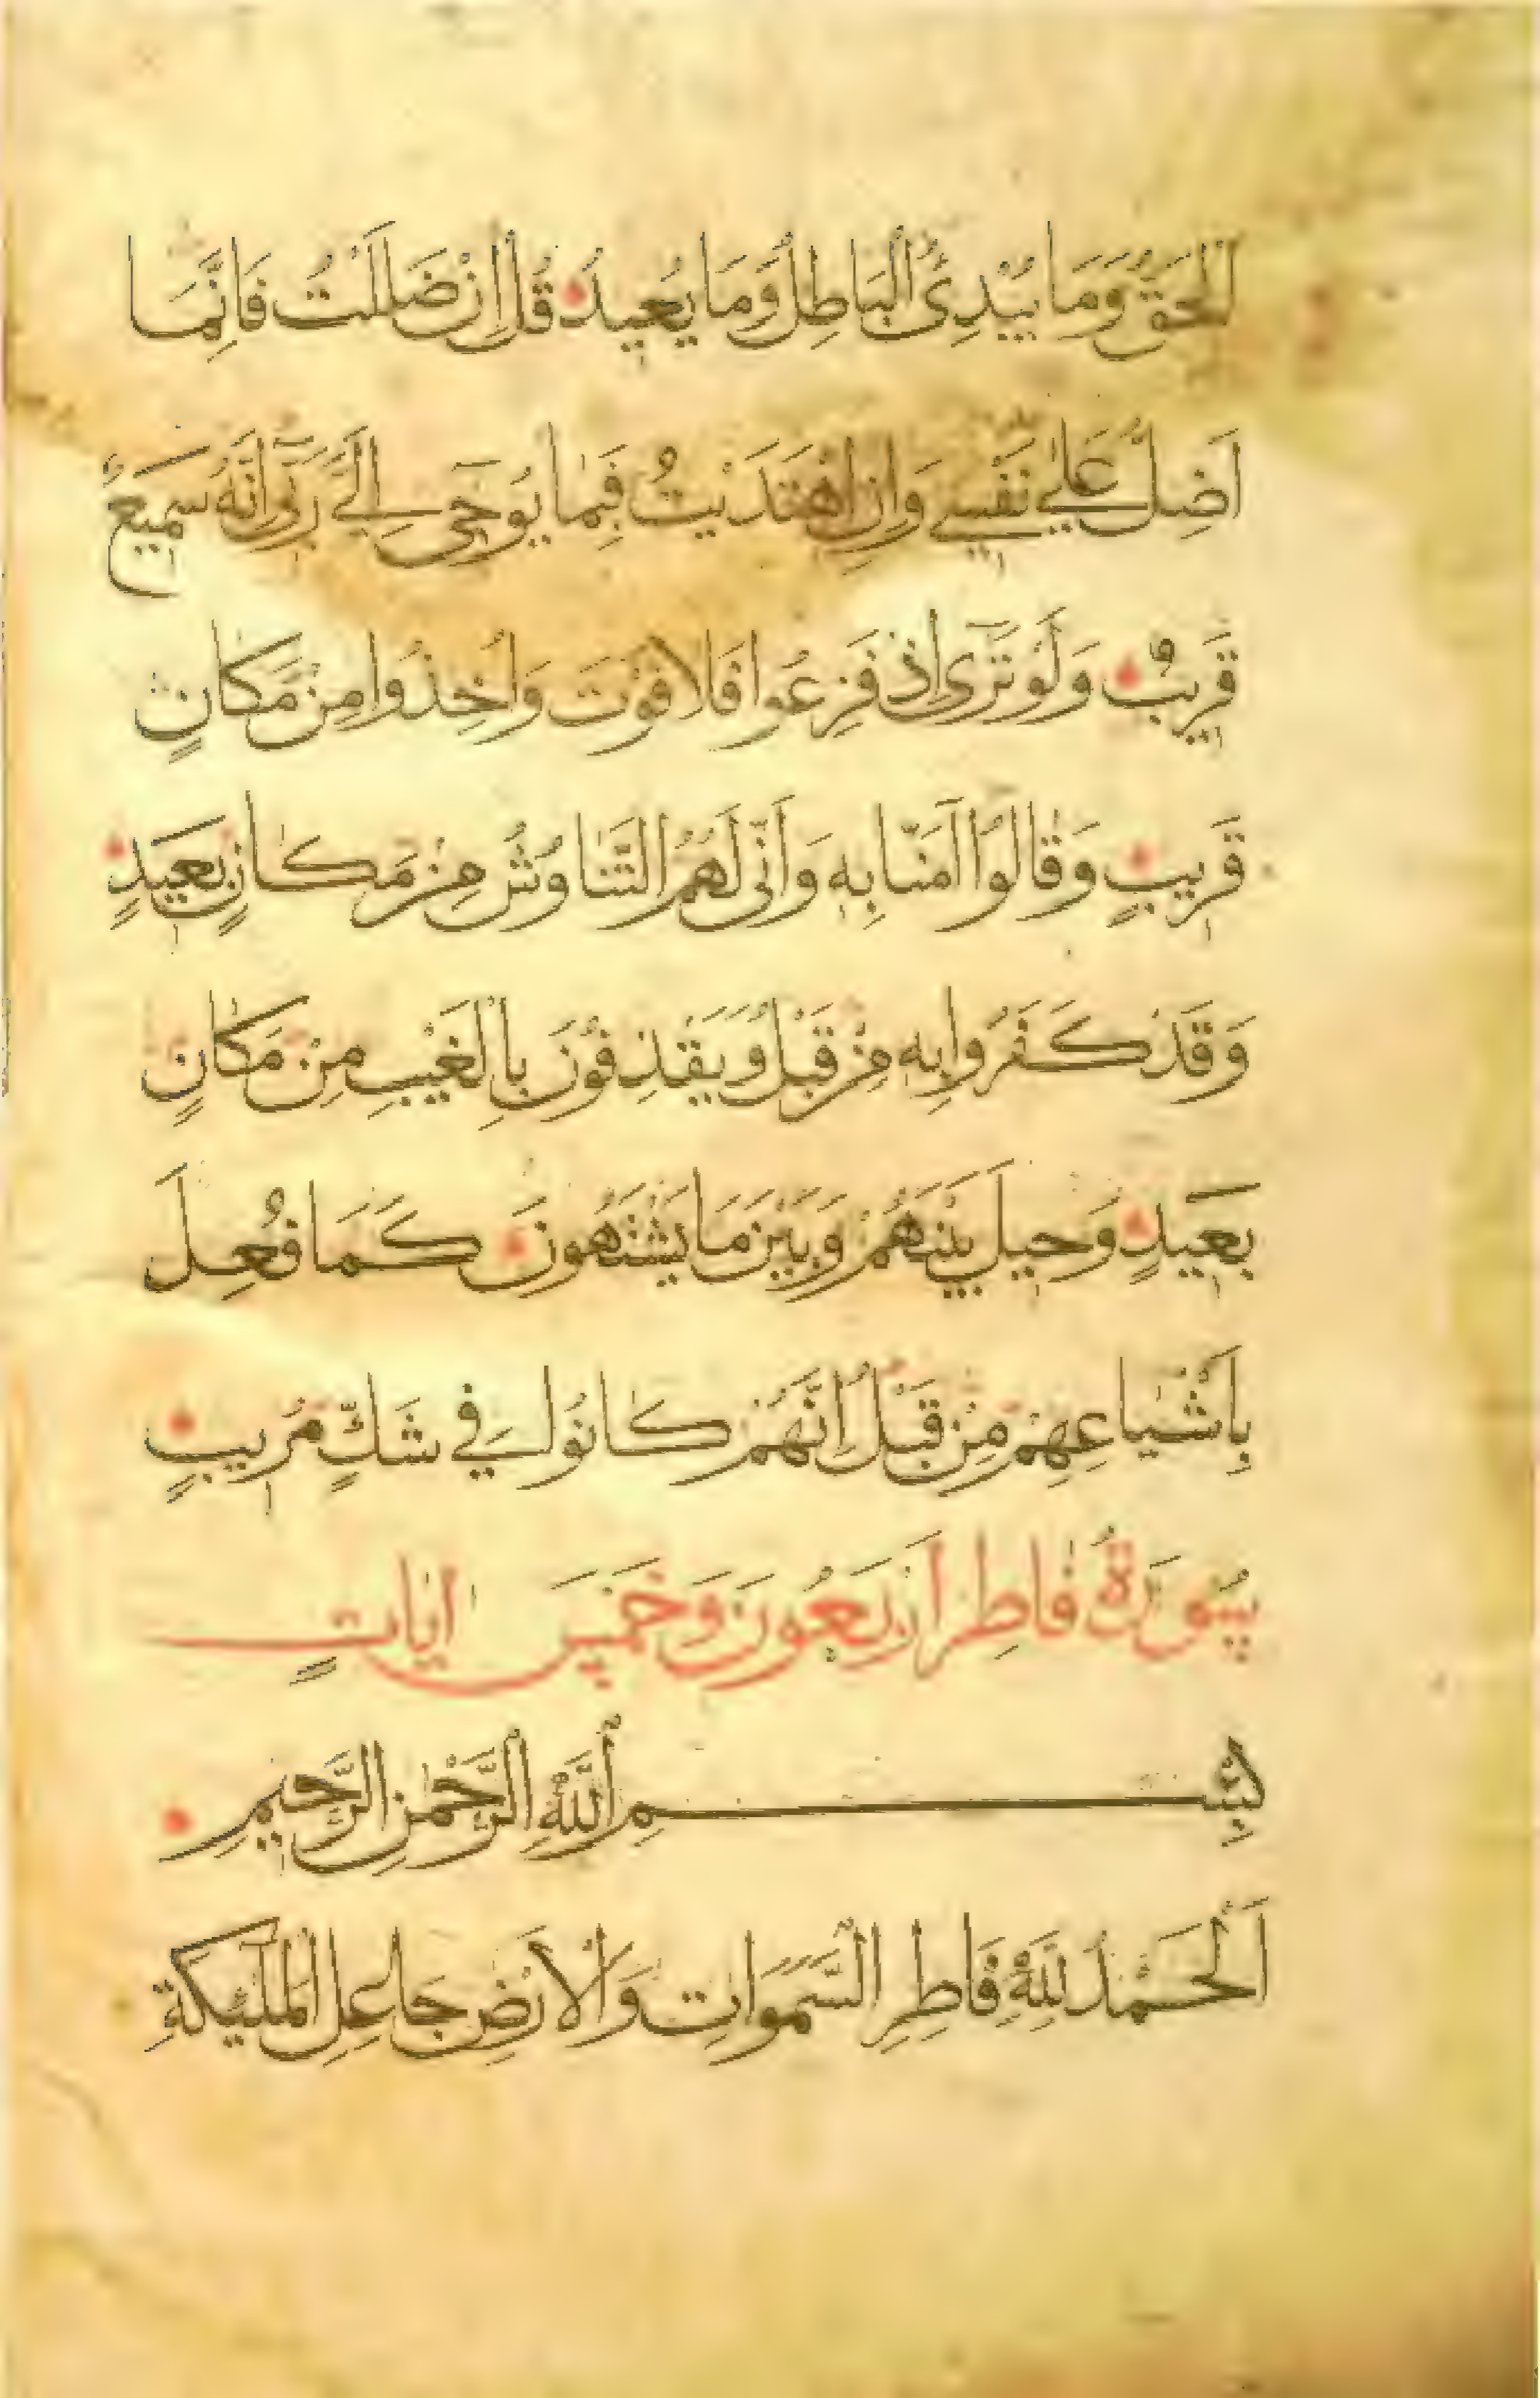 الْحَقُّ وَمَا يُبْدِئُ الْبَاطِلُ وَمَا يُعِيدُ قُلْ اِنْ ضَلَلْتُ فَاِنَّمَا
اَضِلُّ عَلٰي نَفْسِي وَاِنِ اهْتَدَيْتُ فَبِمَا يُوحٰي اِلَيَّ رَبِّي اِنَّهُ سَمِيعٌ
قَرِيبٌ وَلَوْ تَرٰٓى اِذْ فَزِعُوا فَلَا فَوْتَ وَاُخِذُوا مِنْ مَكَانٍ
قَرِيبٍ وَقَالُوا اٰمَنَّا بِهِ وَاَنّٰي لَهُمُ التَّنَاوُشُ مِنْ مَكَانٍ بَعِيدٍ
وَقَدْ كَفَرُوا بِهِ مِنْ قَبْلُ وَيَقْذِفُوْنَ بِالْغَيْبِ مِنْ مَكَانٍ
بَعِيدٍ وَحِيلَ بَيْنَهُمْ وَبَيْنَ مَا يَشْتَهُونَ كَمَا فُعِلَ
بِاَشْيَاعِهِمْ مِنْ قَبْلُ اِنَّهُمْ كَانُوا فِي شَكٍّ مُرِيبٍ
سُوْرَةُ فَاطِر اَرْبَعُونَ وَخَمْسَ اٰيَاتٍ
بِسْمِ اللّٰهِ الرَّحْمٰنِ الرَّحِيمِ
اَلْحَمْدُ لِلّٰهِ فَاطِرِ السَّمَوَاتِ وَالْاَرْضِ جَاعِلِ الْمَلٰٓئِكَةِ